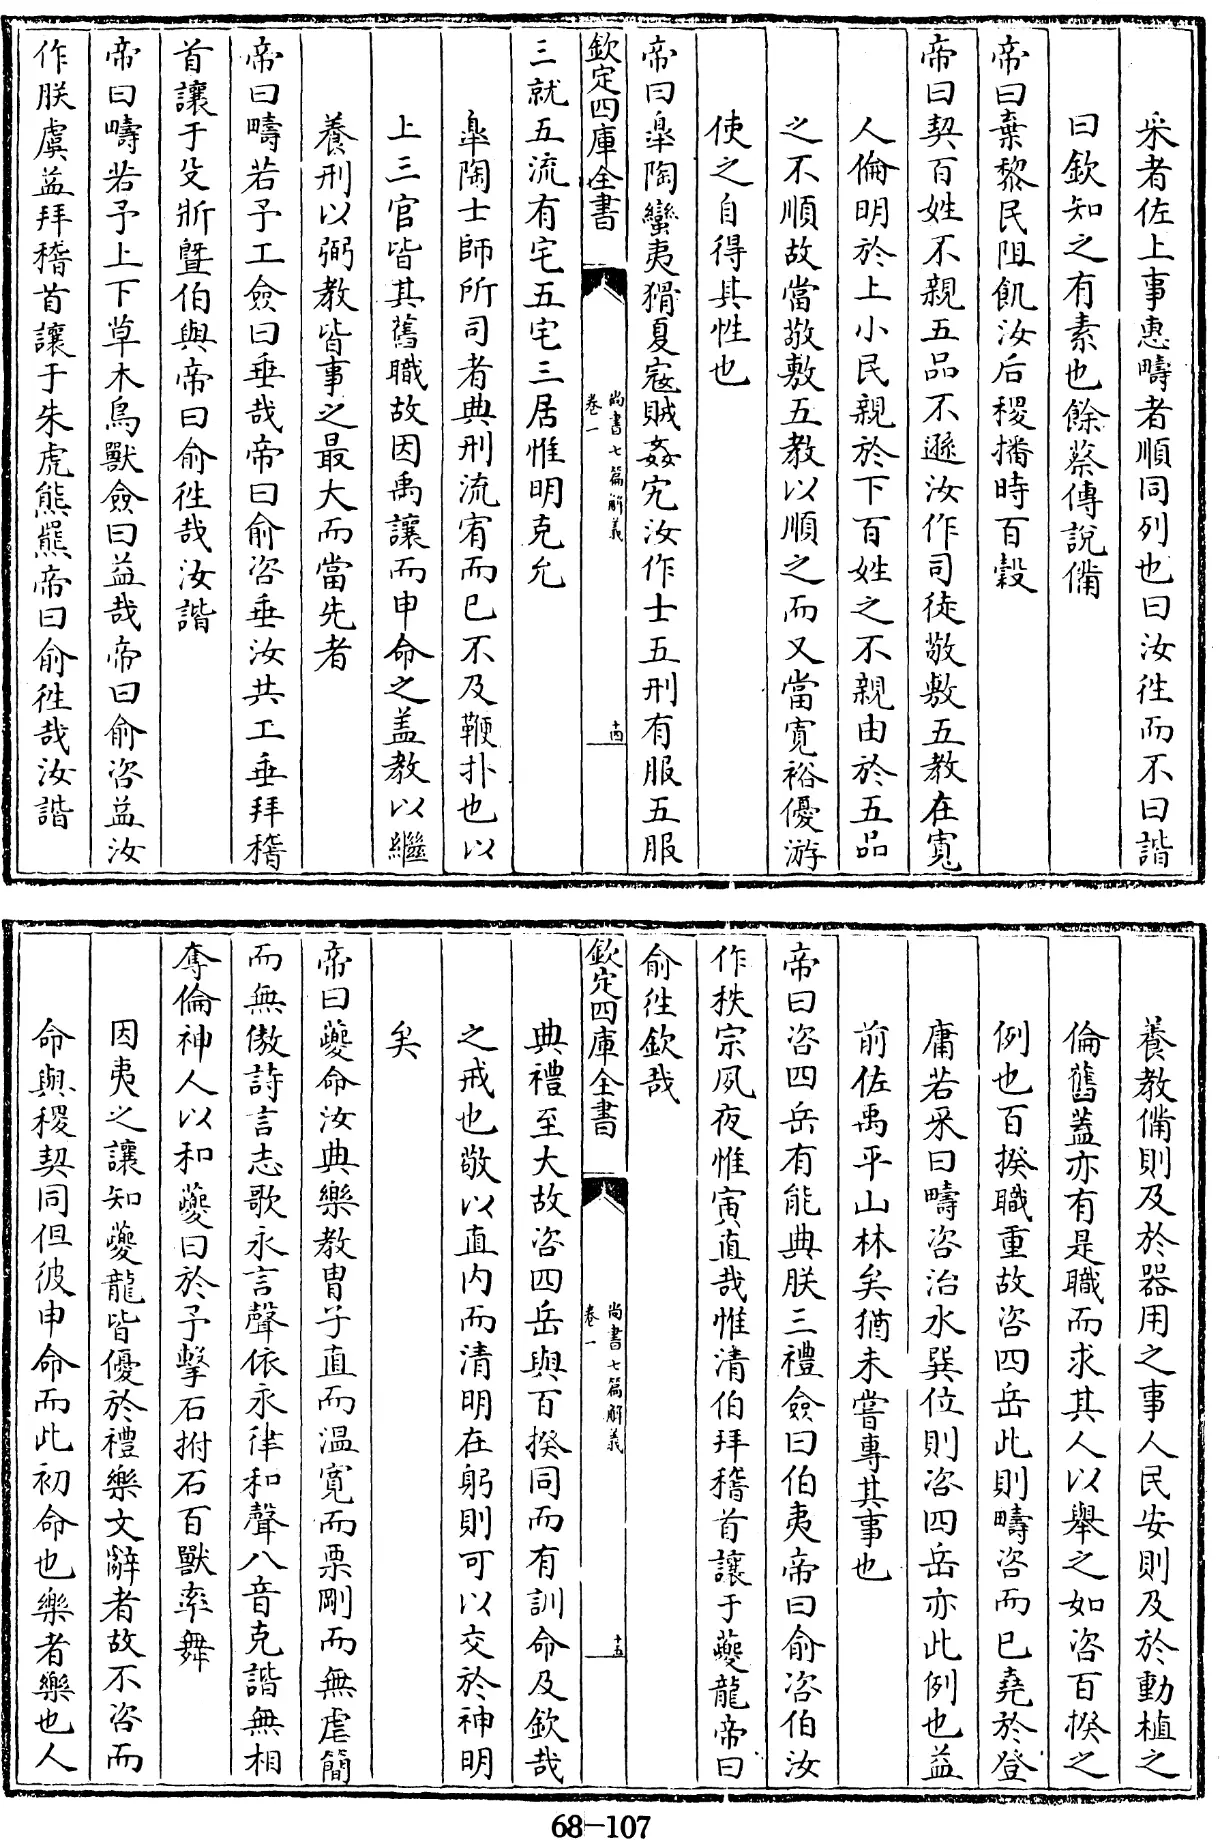 采者佐上事惠疇者順同列也曰汝徃而不曰諧
曰欽知之有素也餘蔡傳説備
帝曰棄黎民阻飢汝后稷播時百穀
帝曰契百姓不親五品不遜汝作司徒敬敷五教在寛
人倫明於上小民親於下百姓之不親由於五品
之不順故當敬敷五教以順之而又當寛裕優游
使之自得其性也
帝曰臯陶蠻夷猾夏寇賊姦宄汝作士五刑有服五服
欽定四庫全書
尚書七篇解義
卷一
十四
三就五流有宅五宅三居惟明克允
臯陶士師所司者典刑流宥而已不及鞭扑也以
上三官皆其舊職故因禹讓而申命之盖教以繼
養刑以弼教皆事之最大而當先者
帝曰疇若予工僉曰垂哉帝曰俞咨垂汝共工垂拜稽
首讓于殳斨暨伯與帝曰俞徃哉汝諧
帝曰疇若予上下草木鳥獸僉曰益哉帝曰俞咨益汝
作朕虞益拜稽首讓于朱虎熊羆帝曰俞徃哉汝諧
養教備則及於器用之事人民安則及於動植之
倫舊蓋亦有是職而求其人以舉之如咨百揆之
例也百揆職重故咨四岳此則疇咨而已堯於登
庸若采曰疇咨治水巽位則咨四岳亦此例也益
前佐禹平山林矣猶未嘗專其事也
帝曰咨四岳有能典朕三禮僉曰伯夷帝曰俞咨伯汝
作秩宗夙夜惟寅直哉惟清伯拜稽首讓于夔龍帝曰
俞徃欽哉
欽定四庫全書
尚書七篇解義
卷一
十五
典禮至大故咨四岳與百揆同而有訓命及欽哉
之戒也敬以直内而清明在躬則可以交於神明
矣
帝曰夔命汝典樂教胄子直而温寛而栗剛而無虐簡
而無傲詩言志歌永言聲依永律和聲八音克諧無相
奪倫神人以和夔曰於予擊石拊石百獸率舞
因夷之讓知夔龍皆優於禮樂文辭者故不咨而
命與稷契同但彼申命而此初命也樂者樂也人
68-107